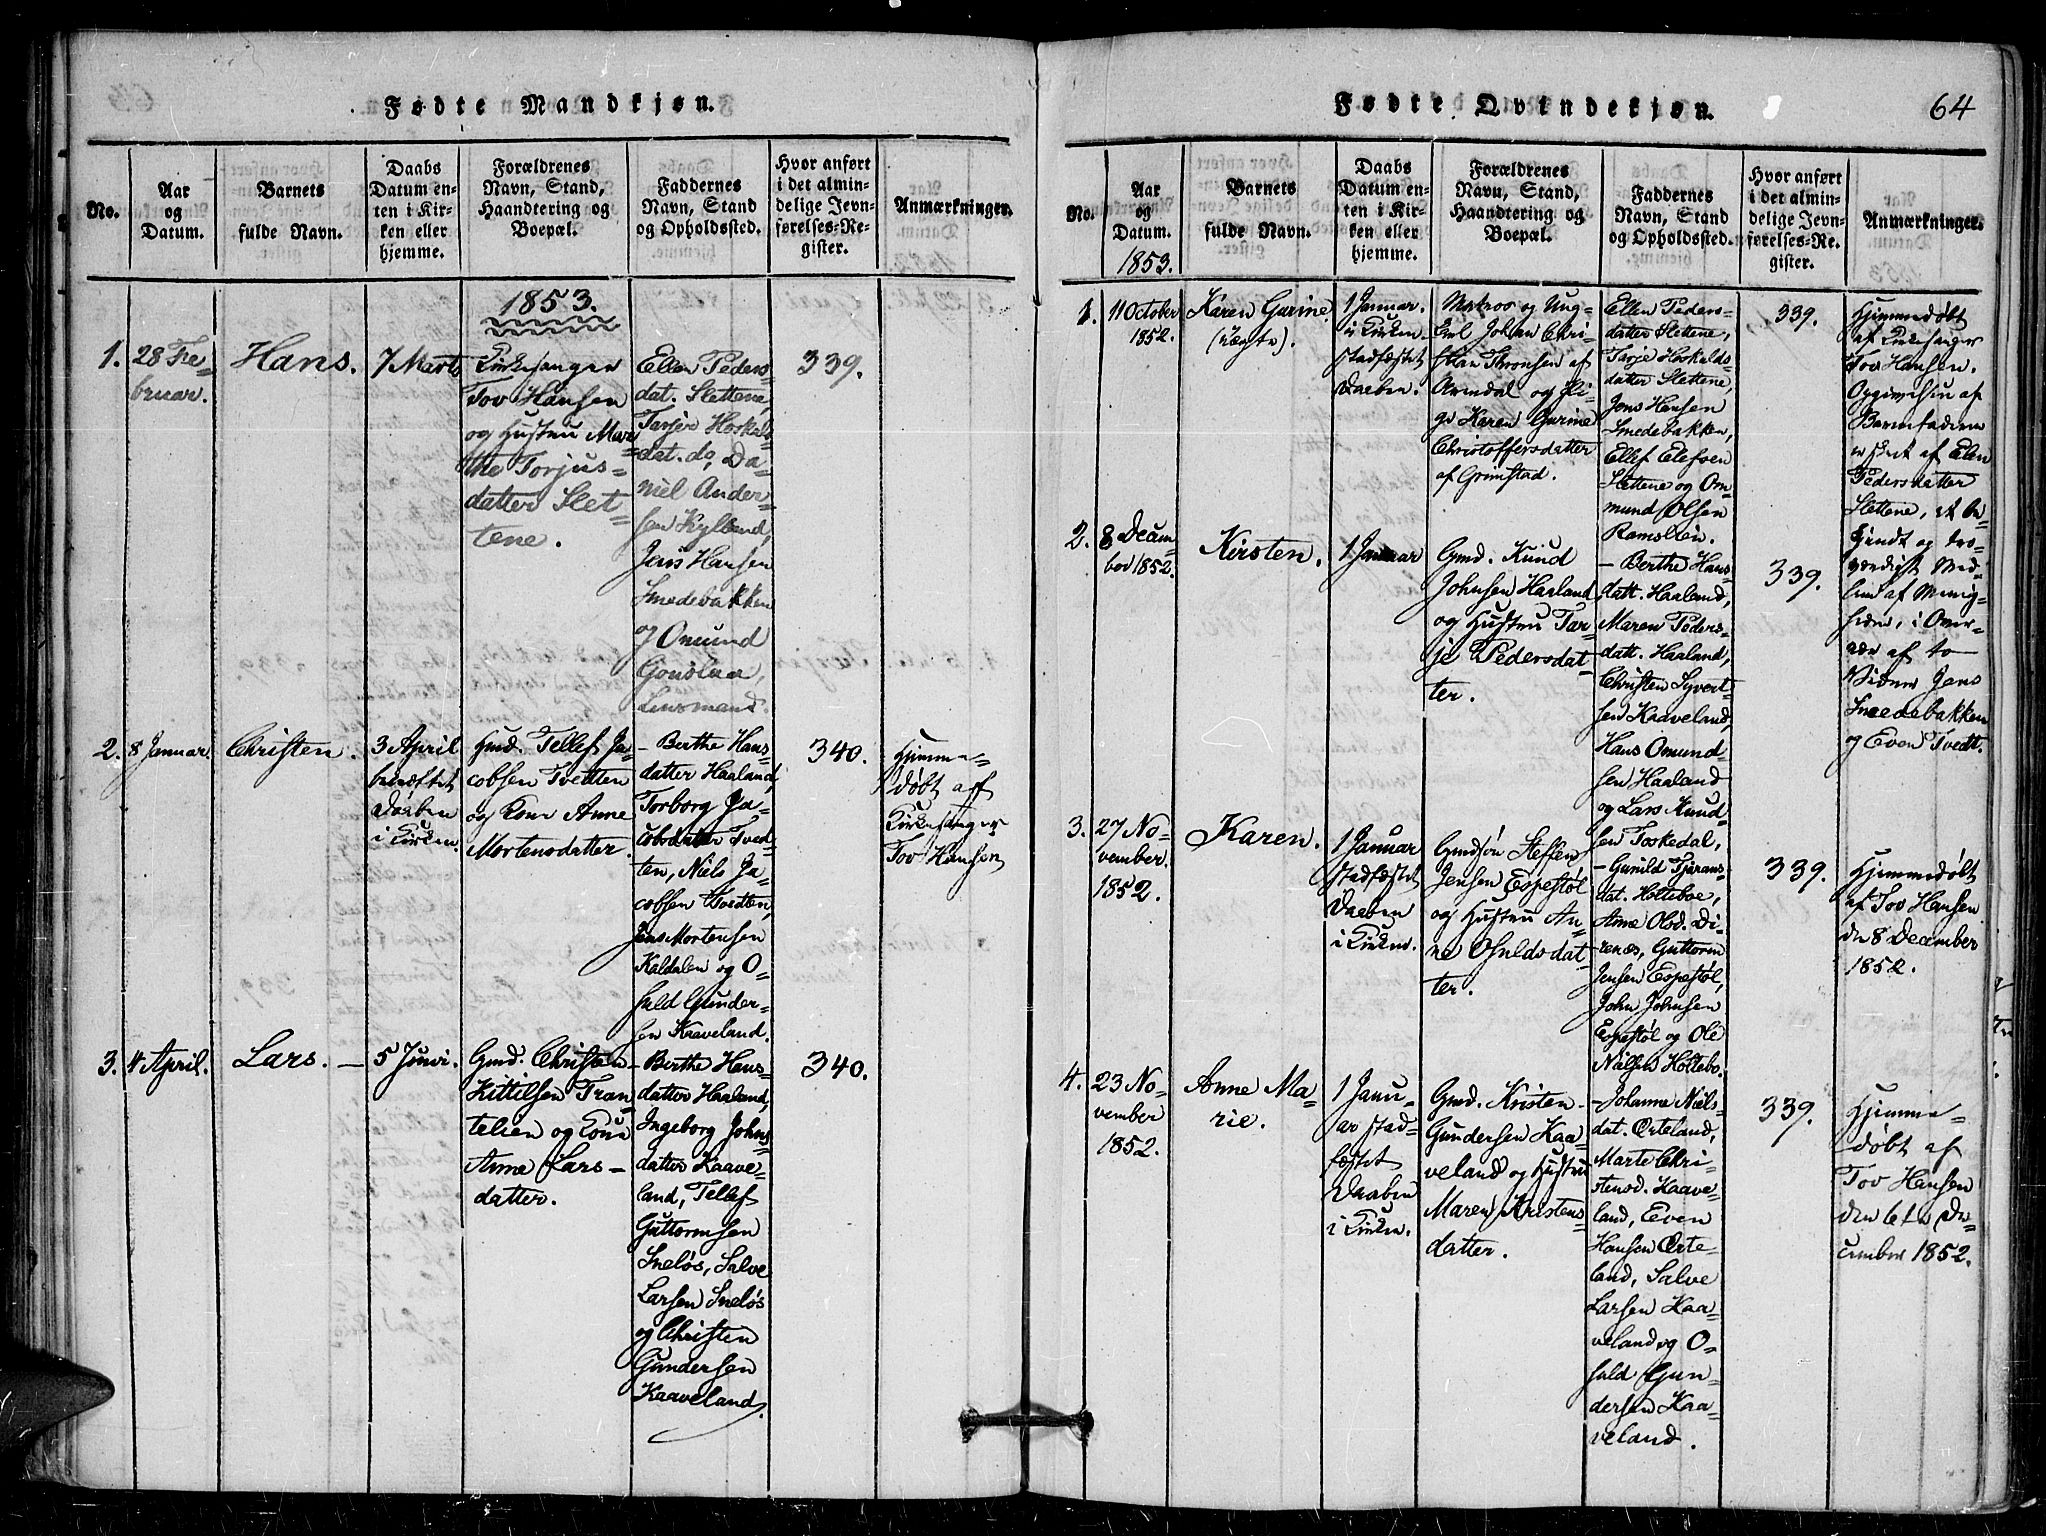 Fødte Mandkjøn.
No.
Aar
og
Datum.
Barnets
fulde Navn.
Daabs
Datum en-
ten i Kir-
ken eller
hjemme.
Forældrenes
Navn, Stand,
Haandtering og
Boepæl.
Faddernes
Navn, Stand
og Opholdssted.
Hvor anført
i det almin-
delige Jevn-
førelses-Re-
gister.
Anmærkninger.
1853.
1.
28 Fe-
bruar.
Hans.
7 Marts
Kirkesanger
Tov Hansen
og Hustru Mar
the Torjus-
datter Slet-
tene.
Ellen Peders-
dat. Slettene,
Tarjer Hoskolds
dat. do, Da-
niel Ander
sen Kylland,
Jens Hansen
Smedebakken
og Omund
Gonslaa,
Lensmand.
339.
2.
8 Januar.
Christen.
3 April
bekræftet
Daaben
i Kirken.
Gmd. Tellef Ja
cobsen Tvedten
og Kone Anne
Mortensdatter.
- Berthe Hans
datter Haaland,
Torborg Ja-
cobsdatter Tved-
ten, Niels Ja-
cobsen Tvedten,
Jens Mortensen
Kaldalen og O-
suld Gunder-
sen Kaaveland.
340.
Hjemme-
døbt aff
Kirkesanger
Tov Hansen
3.
4 April.
Lars. —
5 Juni.
Gmd. Christen
Kittilsen Tran
telien og Kone
Anne Lars-
datter.
- Berthe Hans-
datter Haaland,
Ingeborg Johns
datter Kaave-
land, Tellef
Guttormsen
Sneløs, Salve
Larsen Sneløs
og Christen
Gundersen
Kaaveland.
340.
Fødte Qvindekjøn.
64
No.
Aar
og
Datum.
1853.
Barnets
fulde Navn.
Daabs
Datum en-
ten i Kir-
ken eller
hjemme.
Forældrenes
Navn, Stand,
Haandtering og
Boepæl.
Faddernes
Navn, Stand
og Opholdssted.
Hvor anført
i det almin-
delige Jevn-
førelses-Re-
gister.
Anmærkninger.
1.
11 October
1852.
Karen Gurine.
(uægte).
1 Januar.
i Kirken
stadfæstet
Daaben.
Matros og Ung-
karl Johan Chri-
stian Thronsen af
Arendal og Pi-
ge Karen Gurine
Christoffersdatter
af Grimstad.
Ellen Peders-
datter Slettene,
Tarje Hoskolds
datter Slettene,
Jens Hansen
Smedebakken,
Ellef Elefsen
Slettene og Om-
mund Olsen
Ramslien.
339.
Hjemmedøbt
af Kirkesanger
Tov Hansen.
Opgivelsen af
Barnefaderen
er skeet af Elen
Pedersdatter
Slettene, et be-
kjendt og tro-
værdigt Med-
lem af Menig-
heden, i Over-
vær af to
Vidner Jens
Smedebakken
og Even Tvedt.
2.
8 Decem-
ber 1852.
Kirsten.
1 Januar
Gmd. Knud
Johnsen Haaland
og Hustru Tar-
je Pedersdat
ter.
- Berthe Hans-
datt. Haaland,
Maren Peders-
datt. Haaland,
Christen Syvert-
sen Kaaveland,
Hans Omund-
sen Haaland
og Lars Knud-
sen Toskedal,
339.
3.
27 No-
vember.
1852.
Karen.
1 Januar
stadfæstet
Daaben
i Kirken.
Gmdsøn Steffen
Jensen Espestøl
og Hustru An-
ne Osuldsdat-
ter.
- Gunild Tjørans-
dat. Holteboe,
Anne Olsd. Di-
renæs, Guttorm
Jensen Espestøl,
John Johnsen
Espestøl og Ole
Nielsen Holtebo.
339.
Hjemmedøbt
af Tov Hansen
den 8 December
1852.
4.
23 No-
vember
1852.
Anne Ma-
rie.
1 Janu-
ar stad-
fæstet
Daaben
i Kirken.
Gmd. Kristen
Gundersen Kaa-
veland og Hustru
Maren Kristens-
datter.
- Johanne Niels-
dat. Ørteland,
Marte Chri-
stensd. Kaave-
land, Even
Hansen Ørte-
land, Salve
Larsen Kaa-
veland og O-
suld Gun-
dersen Kaa-
veland.
339.
Hjemme-
døbt af
Tov Hansen
den 6te De-
cember 1852.